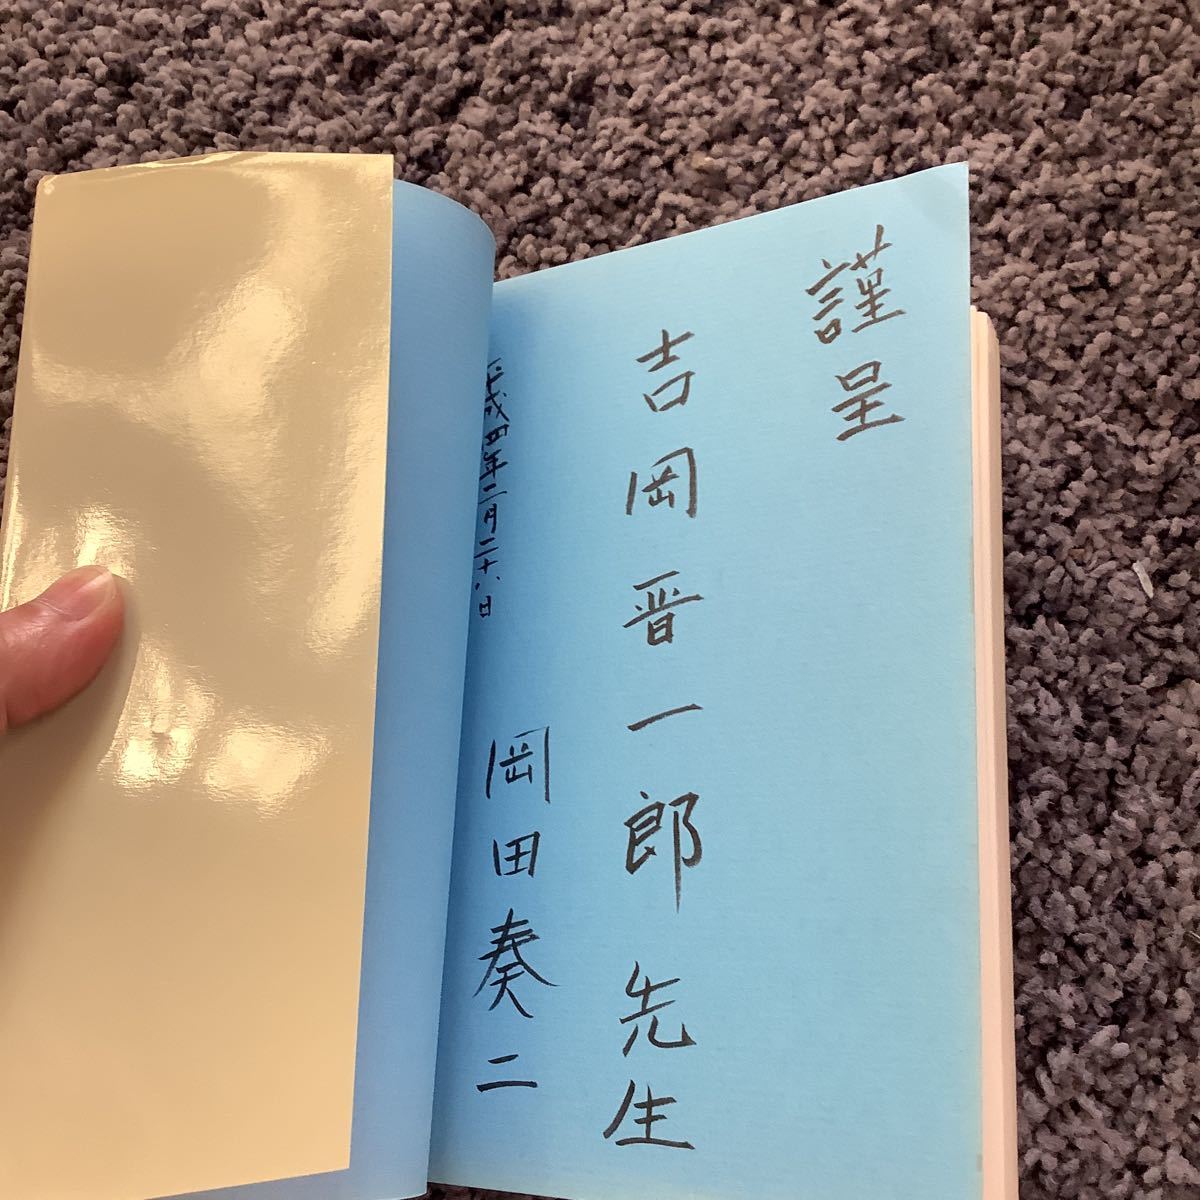 謹呈
吉岡晋一郎先生
平成四年二月二十八日
岡田奏二